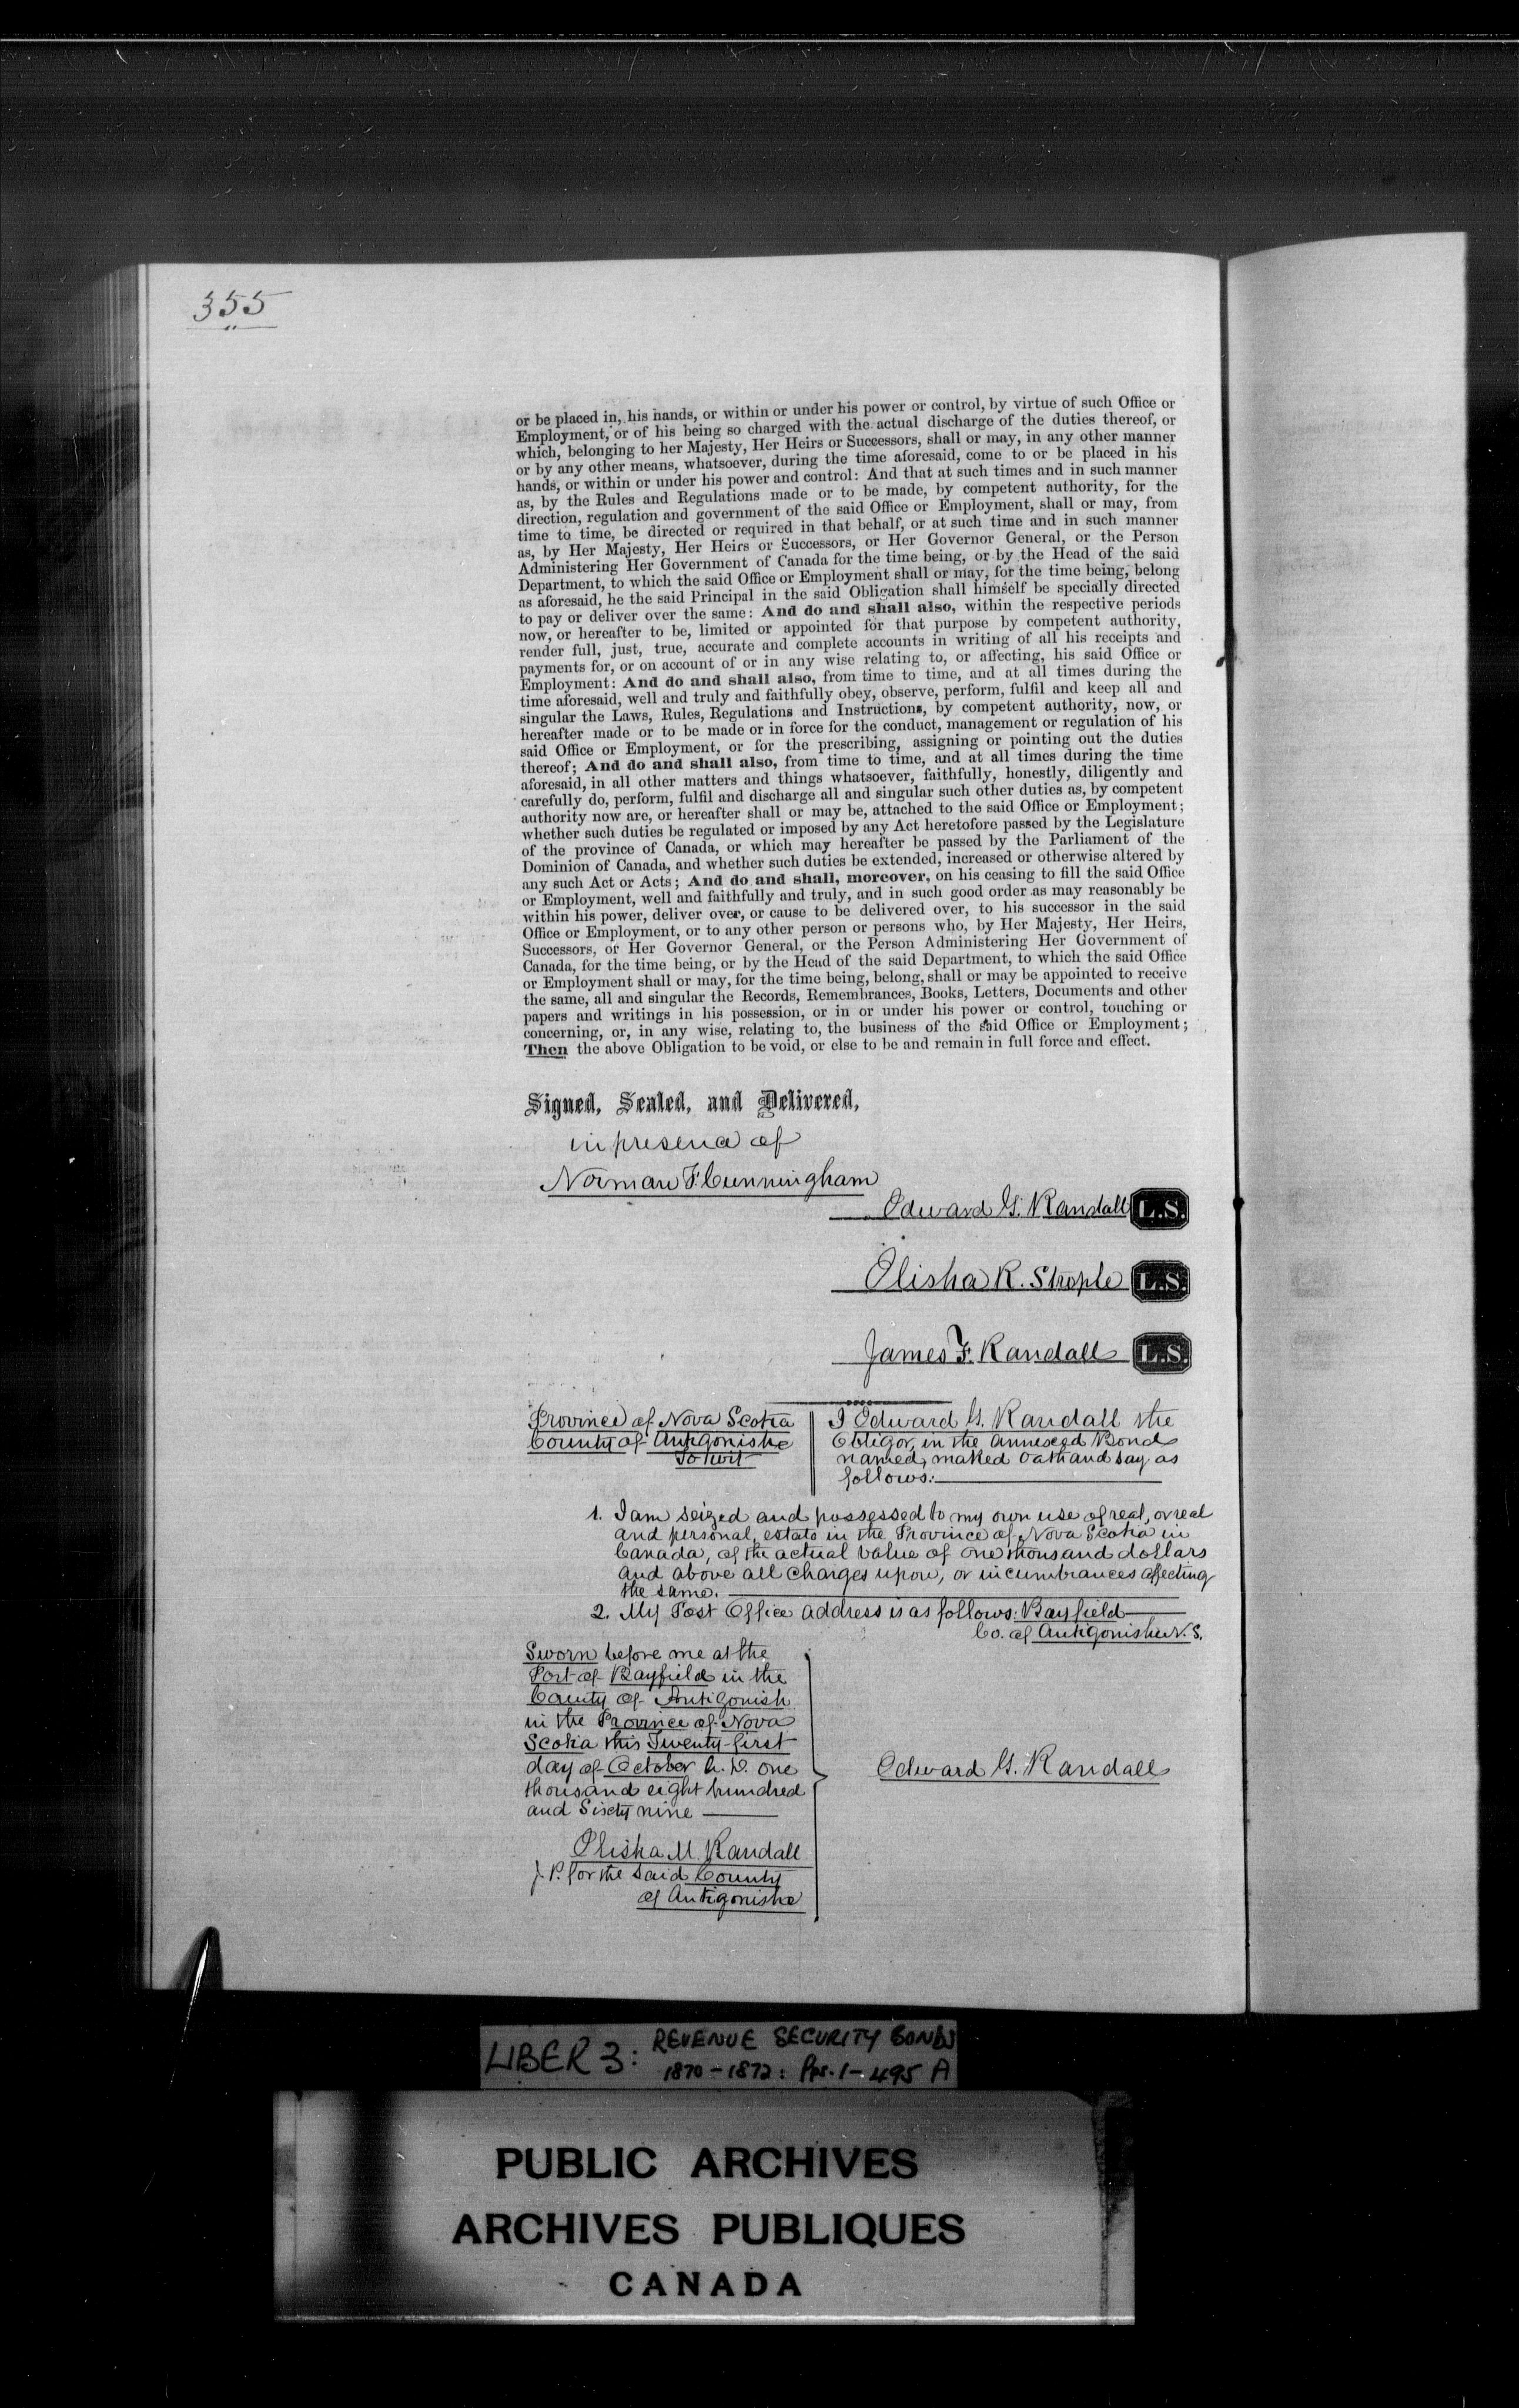 355
or be placed in, his hands, or within or under his power or control, by virtue of such Office or
Employment, or of his being so charged with the actual discharge of the duties thereof, or
which, belonging to her Majesty, Her Heirs or Successors, shall or may, in any other manner
or by any other means, whatsoever, during the time aforesaid, come to or be placed in his
hands, or within or under his power and control: And that at such times and in such manner
as, by the Rules and Regulations made or to be made, by competent authority, for the
direction, regulation and government of the said Office or Employment, shall or may, from
time to time, be directed or required in that behalf, or at such time and in such manner
as, by Her Majesty, Her Heirs or Successors, or Her Governor General, or the Person
Administering Her Government of Canada for the time being, or by the Head of the said
Department, to which the said Office or Employment shall or may, for the time being, belong
as aforesaid, he the said Principal in the said Obligation shall himself be specially directed
to pay or deliver over the same: And do and shall also, within the respective periods
now, or hereafter to be, limited or appointed for that purpose by competent authority,
render full, just, true, accurate and complete accounts in writing of all his receipts and
payments for, or on account of or in any wise relating to, or affecting, his said Office or
Employment: And do and shall also, from time to time, and at all times during the
time aforesaid, well and truly and faithfully obey, observe, perform, fulfil and keep all and
singular the Laws, Rules, Regulations and Instructions, by competent authority, now, or
hereafter made or to be made or in force for the conduct, management or regulation of his
said Office or Employment, or for the prescribing, assigning or pointing out the duties
thereof; And do and shall also, from time to time, and at all times during the time
aforesaid, in all other matters and things whatsoever, faithfully, honestly, diligently and
carefully do, perform, fulfil and discharge all and singular such other duties as, by competent
authority now are, or hereafter shall or may be, attached to the said Office or Employment;
whether such duties be regulated or imposed by any Act heretofore passed by the Legislature
of the province of Canada, or which may hereafter be passed by the Parliament of the
Dominion of Canada, and whether such duties be extended, increased or otherwise altered by
any such Act or Acts; And do and shall, moreover, on his ceasing to fill the said Office
or Employment, well and faithfully and truly, and in such good order as may reasonably be
within his power, deliver over, or cause to be delivered over, to his successor in the said
Office or Employment, or to any other person or persons who, by Her Majesty, Her Heirs,
Successors, or Her Governor General, or the Person Administering Her Government of
Canada, for the time being, or by the Head of the said Department, to which the said Office
or Employment shall or may, for the time being, belong, shall or may be appointed to receive
the same, all and singular the Records, Remembrances, Books, Letters, Documents and other
papers and writings in his possession, or in or under his power or control, touching or
concerning, or, in any wise, relating to, the business of the said Office or Employment;
Then the above Obligation to be void, or else to be and remain in full force and effect.
Signed, Sealed, and Delivered,
in presence of
Norman F. Cunningham
Edward G. Randall L.S.
Elisha R. Strople L.S.
James F. Randall L.S.
Province of Nova Scotia
County of Antigonishe
To wit
I Edward G. Randall the
Obligor, in the annexed Bond
named, maked oath and say as
follows:
1. I am seized and possessed to my own use of real, or real
and personal, estate in the Province of Nova Scotia in
Canada, of the actual value of one thousand dollars
and above all charges upon, or incumbrances affecting
the same.
2. My Post Office address is as follows: Bayfield
Co. of Antigonishe N.S.
Sworn before me at the
Port of Bayfield in the
County of Antigonish
in the Province of Nova
Scotia this Twenty-first
day of October A.D. one
thousand eight hundred
and Sixty nine
Edward G. Randall
Elisha M. Randall
J.P. for the said County
of Antigonishe
LIBER 3: REVENUE SECURITY BONDS
1870-1872: Pps. 1-495 A
PUBLIC ARCHIVES
ARCHIVES PUBLIQUES
CANADA